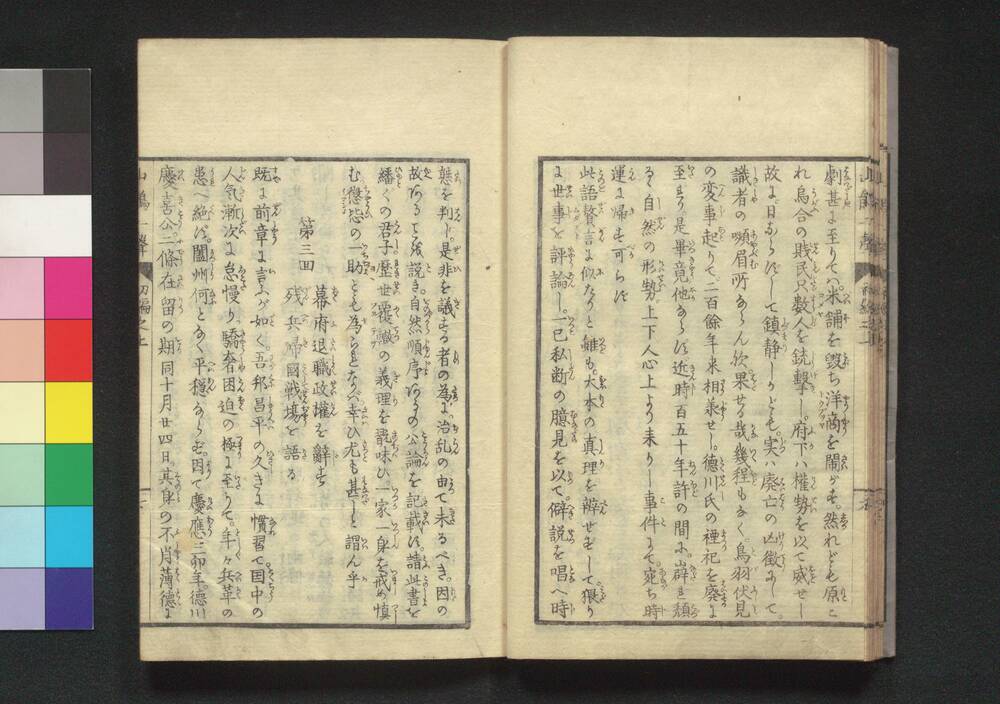 劇甚に至りて。米舗を毀ち洋商を鬧がす。然れども原こ
れ烏合の賎民只数人を銃撃し。府下ハ権勢を以て威せし
故に日ならずして鎮静しかども。実ハ廃亡の凶徴にして。
識者の嚬眉所ならん歟果せる哉幾程もなく。鳥羽伏見
の変事起りて。二百餘年来相承せし。徳川氏の禋祀を廃に
至まり。是畢竟他ならず。近時百五十年許の間に。
る自然の形勢。上下人心上より来りし事件にて。宛も時
運に帰す可らず
此語贅言に似たりと雖も。大本の真理を辨せずして。猥り
に世事を評論し。一己私断の臆見を以て。僻説を唱へ時
態を判し。是非を議する者の為に。治乱の由て来るべき。因の
故ある事を説き。自然順序あるの公論を記載す。請此書を
繙くの君子。歴世覆轍の義理を翫味ひ。一家一身を戒め慎
む。懲毖の一助とも為らまなバ。幸ひ尤も甚しと謂ん乎
第三回
幕府退職政権を辞す
残兵帰国戦場を語る
既に前章に言ふが如く。吾邦昌平の久きに慣習て。国中の
人気漸次に怠慢り。驕奢困迫の極に至りて。年々兵革の
患へ絶ず。闔州何となく平穏ならず。因て慶應三卯年。徳川
慶喜公二條在留の期同十月廿四日。其身の不肖薄徳に